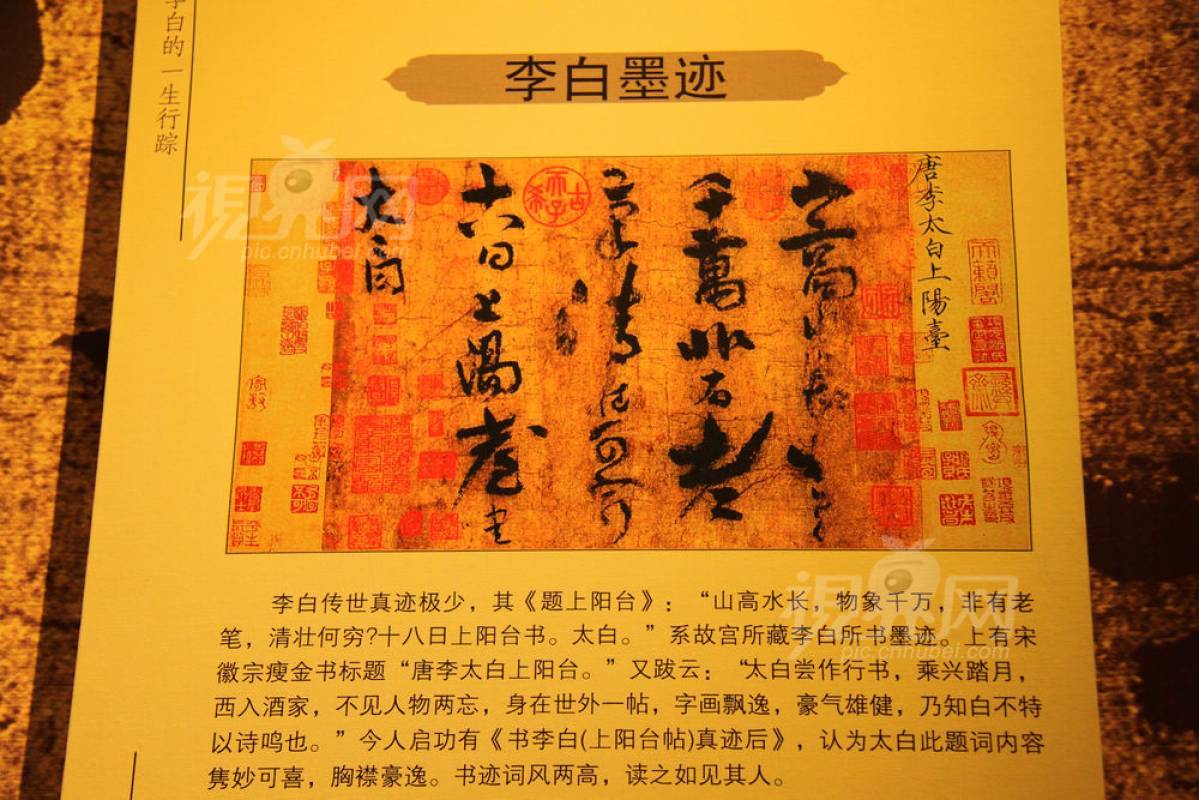 李白的一生行踪
李白墨迹
唐李太白上陽臺
山高水長物象
千萬非有老
筆清壯何窮
十八日上陽臺書
太白
李白传世真迹极少，其《题上阳台》：“山高水长，物象千万，非有老
笔，清壮何穷?十八日上阳台书。太白。”系故宫所藏李白所书墨迹。上有宋
徽宗瘦金书标题“唐李太白上阳台。”又跋云：“太白尝作行书，乘兴踏月，
西入酒家，不见人物两忘，身在世外一帖，字画飘逸，豪气雄健，乃知白不特
以诗鸣也。”今人启功有《书李白(上阳台帖)真迹后》，认为太白此题词内容
隽妙可喜，胸襟豪逸。书迹词风两高，读之如见其人。
視界网
pic.cnhubei.com
視界网
pic.cnhubei.com